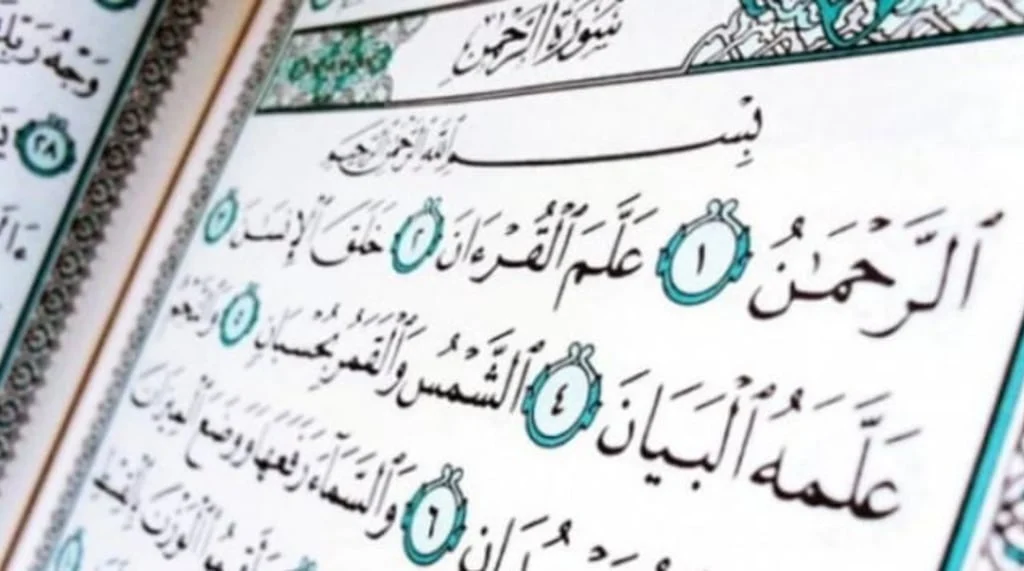 سُورَةُ الرَّحْمَٰن
بِسْمِ ٱللَّهِ ٱلرَّحْمَٰنِ ٱلرَّحِيمِ
ٱلرَّحْمَٰنُ ١ عَلَّمَ ٱلْقُرْءَانَ ٢ خَلَقَ ٱلْإِنسَٰنَ ٣
عَلَّمَهُ ٱلْبَيَانَ ٤ ٱلشَّمْسُ وَٱلْقَمَرُ بِحُسْبَانٍ ٥ وَٱلنَّجْمُ
٦ وَٱلسَّمَآءَ رَفَعَهَا وَوَضَعَ ٱلْمِيزَانَ
ٱلْوَزْنَ بِٱلْقِسْطِ
وَجْهُ رَبِّكَ
٢٨